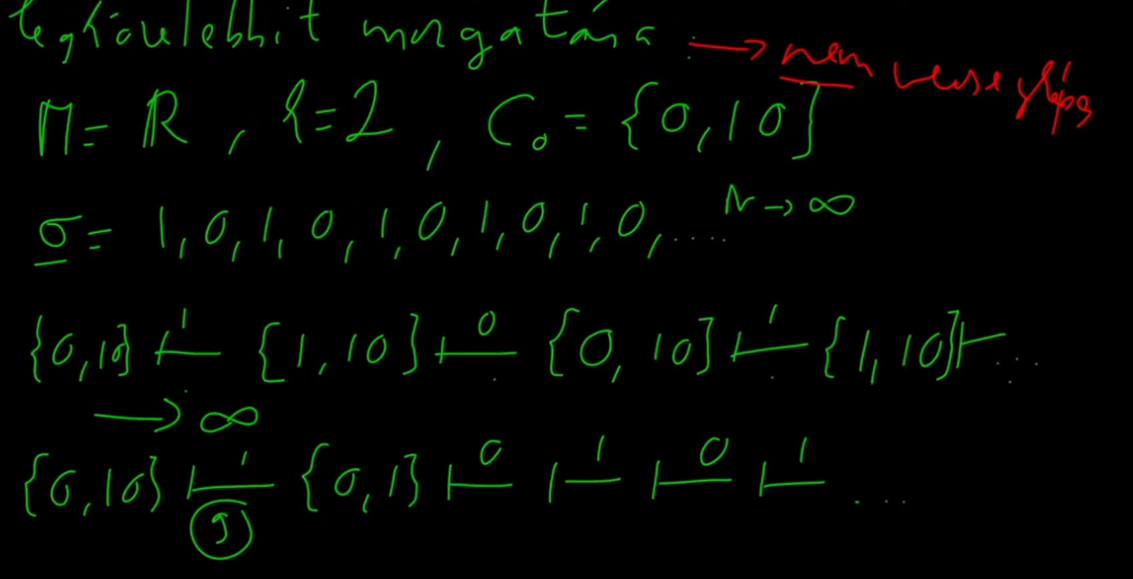 legközelebbit mozgatása → nem versenyképes
M = ℝ, k=2, C₀ = {0,10}
σ = 1,0,1,0,1,0,1,0,1,0,.... N → ∞
{0,10} ⊢¹ {1,10} ⊢⁰ {0,10} ⊢¹ {1,10} ⊢ ...
→ ∞
{0,10} ⊢¹ {0,1} ⊢⁰ ⊢¹ ⊢⁰ ⊢¹ ....
9